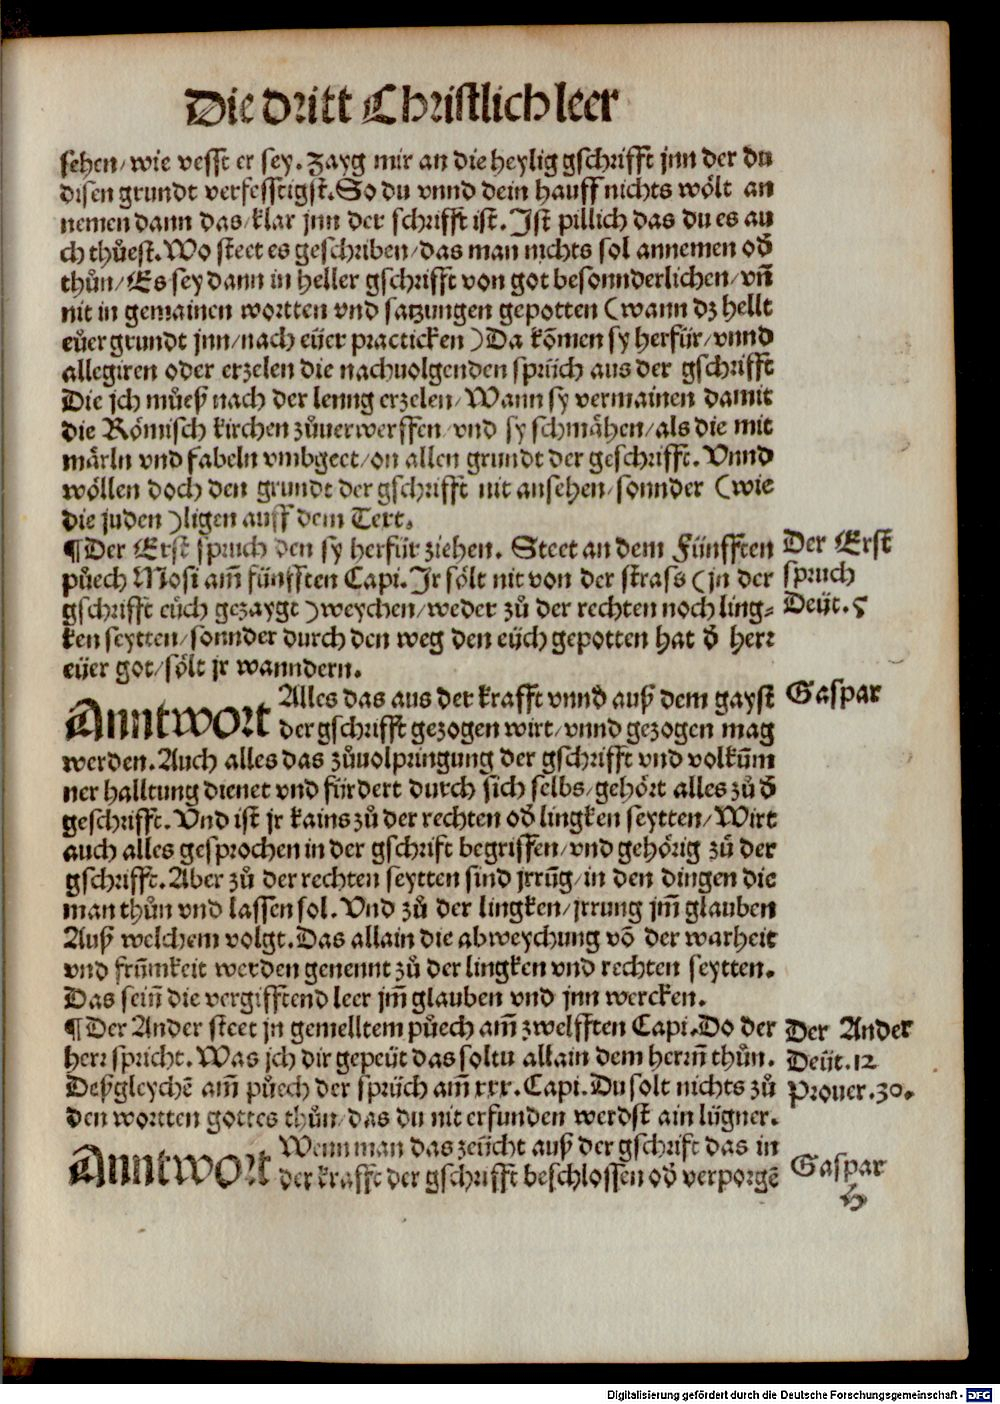 Die dritt Christlich leer
sehen/ wie vesst er sey. Zayg mir an die heylig gschrifft jnn der du
disen grundt verfesstigst. So du vnnd dein hauff nichts wölt an
nemen dann das/ klar jnn der schrifft ist. Ist pillich das du es au
ch thůest. Wo steet es geschriben/ das man nichts sol annemen oď
thůn/ Es sey dann in heller gschrifft von got besonnderlichen/ vn̄
nit in gemainen wortten vnd satzungen gepotten (wann dz hellt
eüer grundt jnn/ nach eüer practicken) Da kōmen sy herfür/ vnnd
allegiren oder erzelen die nachuolgenden sprüch aus der gschrifft
Die jch můeß nach der lenng erzelen/ Wann sy vermainen damit
die Römisch kirchen zůuerwerffen/ vnd sy schmähen/ als die mit
märln vnd fabeln vmbgeet/ on allen grundt der geschrifft. Vnnd
wöllen doch den grundt der gschrifft nit ansehen/ sonnder (wie
die juden) ligen auff dem Text.
¶ Der Erst spruch den sy herfür ziehen. Steet an dem Fünfften
Der Erst
půech Mosi am̄ fünfften Capi. Ir sölt nit von der strass (jn der
spruch
gschrifft eüch gezaygt) weychen/ weder zů der rechten noch ling⸗
Deüt. 5
ken seytten/ sonnder durch den weg den eüch gepotten hat ď herr
eüer got/ sölt jr wanndern.
Anntwort Alles das aus der krafft vnnd auß dem gayst
Gaspar
der gschrifft gezogen wirt/ vnnd gezogen mag
werden. Auch alles das zůuolpringung der gschrifft vnd volkūm
ner halltung dienet vnd fürdert durch sich selbs/ gehört alles zů ď
geschrifft. Vnd ist jr kains zů der rechten oď lingken seytten/ Wirt
auch alles gesprochen in der gschrift begriffen/ vnd gehörig zů der
gschrifft. Aber zů der rechten seytten sind jrrūg/ in den dingen die
man thůn vnd lassen sol. Vnd zů der lingken/ jrrung jm̄ glauben
Auß welchem volgt. Das allain die abweychung vō der warheit
vnd frūmkeit werden genennt zů der lingken vnd rechten seytten.
Das sein̄ die vergifftend leer jm̄ glauben vnd jnn wercken.
¶ Der Ander steet jn gemelltem půech am̄ zwelfften Capi. Do der
Der Ander
herr spricht. Was jch dir gepeüt das soltu allain dem herrn̄ thůn.
Deüt. 12
Deßgleychē am̄ půech der sprüch am̄ xxx. Capi. Du solt nichts zů
Prouer. 30.
den wortten gottes thůn/ das du nit erfunden werdst ain lügner.
Anntwort Wenn man das zeücht auß der gschrift das in
der krafft der gschrifft beschlossen oď verporgē
Gaspar
H
Digitalisierung gefördert durch die Deutsche Forschungsgemeinschaft - DFG